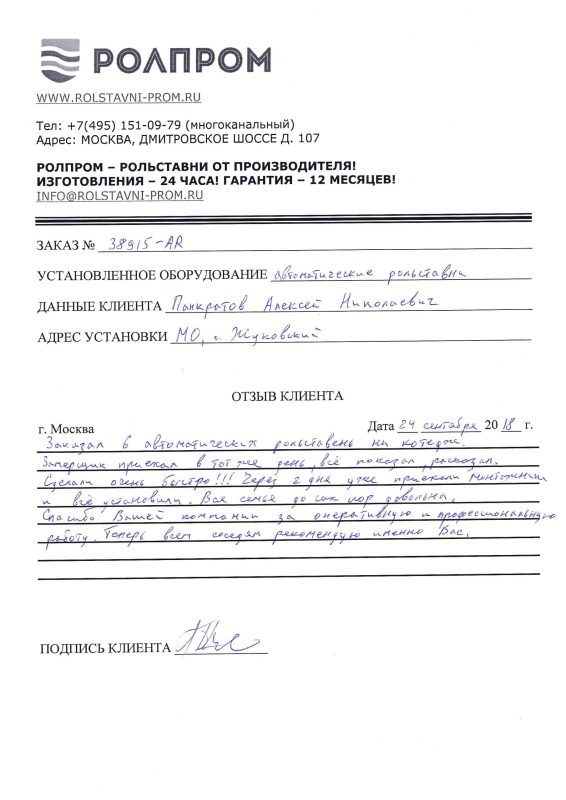 РОЛПРОМ
WWW.ROLSTAVNI-PROM.RU
Тел: +7(495) 151-09-79 (многоканальный)
Адрес: МОСКВА, ДМИТРОВСКОЕ ШОССЕ Д. 107
РОЛПРОМ – РОЛЬСТАВНИ ОТ ПРОИЗВОДИТЕЛЯ!
ИЗГОТОВЛЕНИЯ – 24 ЧАСА! ГАРАНТИЯ – 12 МЕСЯЦЕВ!
INFO@ROLSTAVNI-PROM.RU
ЗАКАЗ № 38915-AR
УСТАНОВЛЕННОЕ ОБОРУДОВАНИЕ автоматические рольставни
ДАННЫЕ КЛИЕНТА Панкратов Алексей Николаевич
АДРЕС УСТАНОВКИ МО, г. Жуковский
ОТЗЫВ КЛИЕНТА
г. Москва Дата 24 сентября 2018 г.
Заказал 6 автоматических рольставень на котедж.
Замерщик приехал в тот же день, всё показал, рассказал.
Сделали очень быстро!!! Через 2 дня уже приехали монтажники
и всё установили. Вся семья до сих пор довольна.
Спасибо Вашей компании за оперативную и профессиональную
работу. Теперь всем соседям рекомендую именно Вас.
ПОДПИСЬ КЛИЕНТА